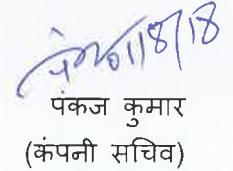 01/8/18
पंकज कुमार
(कंपनी सचिव)